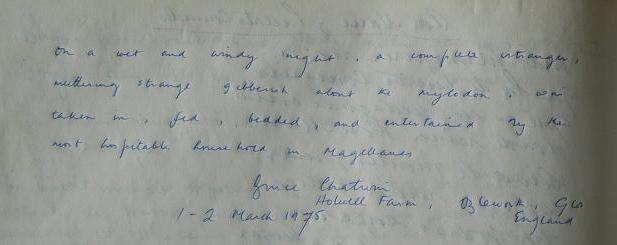 On a wet and windy night, a complete stranger,
muttering strange gibberish about the mylodon, was
taken in, fed, bedded, and entertained by the
most hospitable household in Magellanes
Bruce Chatwin
Holwell Farm, Ozleworth, Glos
1-2 March 1975 England